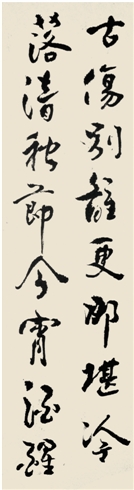 古傷別離更那堪冷
落清秋節今宵酒醒